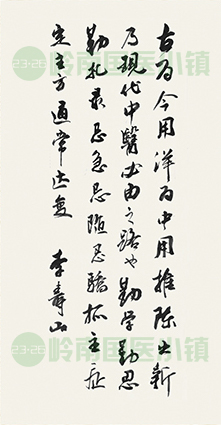 古为今用洋为中用推陈出新
乃现代中医必由之路也勤学勤思
勤礼求忌急忌随忌骄抓主症
定主方通常达变 李寿山
23·26 岭南国医小镇
23·26 岭南国医小镇